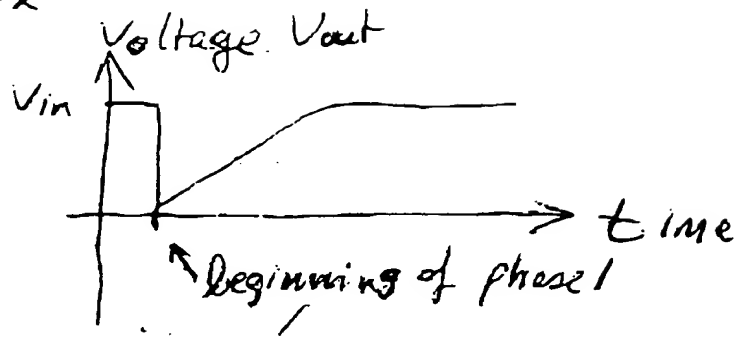 Voltage Vout
Vin
time
beginning of phase 1